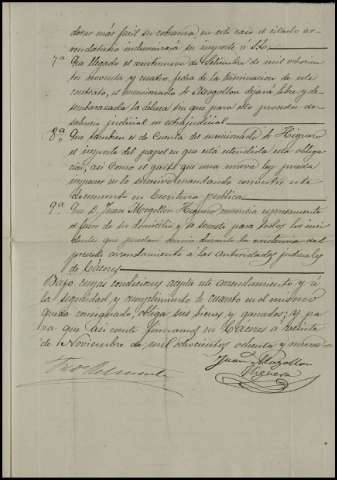 dores más facil su cobranza en este caso el citado ar-
rendatario indemnizará su importe á
7ª Que llegado el veintinueve de Setiembre de mil ochocien-
tos noventa y cuatro, fecha de la terminacion de este
contrato, el mencionado Sr Mogollon dejará libre y de-
sembarazada la dehesa sin que para ello preceda de-
sahucio judicial ni extrajudicial
8ª Que tambien es de cuenta del mencionado Sr Higuero
el importe del papel en que está extendida esta obliga-
cion, así como el gasto que una nueva ley pueda
imponer ó el Escmo mandando convertir este
documento en Escritura publica
9ª Que D. Juan Mogollon Higuero renuncia expresamente
el fuero de su domicilio y se somete para todos los inci-
dentes que puedan ocurrir durante la existencia del
presente arrendamiento á las autoridades judiciales
de Cáceres
Bajo cuyas condiciones acepta el arrendamiento y á
la seguridad y cumplimiento de cuanto en el mismo
queda consignado, obliga sus bienes y ganados; y pa-
ra que así conste firmamos en Cáceres á treinta
de Noviembre de mil ochocientos ochenta y nueve
Juan Mogollon
Higuero